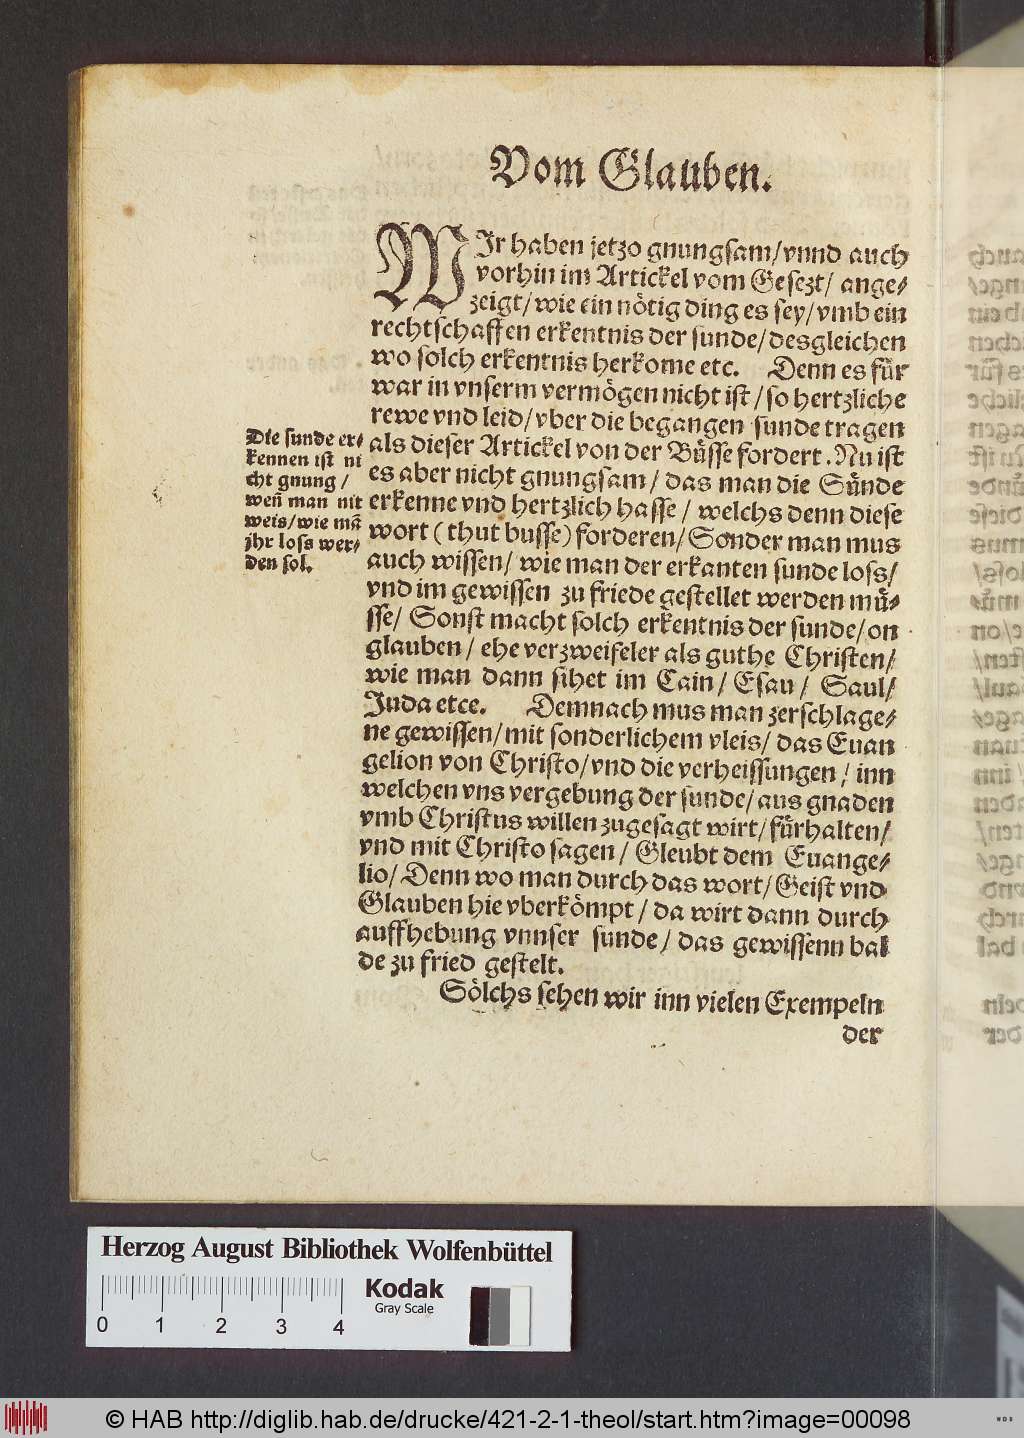 Vom Glauben.
WIr haben jetzo gnungsam/vnnd auch
vorhin im Artickel vom Gesezt/ ange⸗
zeigt/wie ein nötig ding es sey/vmb ein
rechtschaffen erkentnis der sunde/desgleichen
wo solch erkentnis herkome etc. Denn es für
war in vnserm vermögen nicht ist/so hertzliche
rewe vnd leid/vber die begangen sunde tragen
als dieser Artickel von der Büsse fordert. Nu ist
es aber nicht gnungsam/das man die Sünde
erkenne vnd hertzlich hasse/ welchs denn diese
wort (thut busse) forderen/Sonder man mus
auch wissen/ wie man der erkanten sunde loss/
vnd im gewissen zu friede gestellet werden mü⸗
sse/ Sonst macht solch erkentnis der sunde/on
glauben/ehe verzweifeler als guthe Christen/
wie man dann sihet im Cain/ Esau/ Saul/
Juda etce. Demnach mus man zerschlage⸗
ne gewissen/mit sonderlichem vleis/das Euan
gelion von Christo/vnd die verheissungen/ inn
welchen vns vergebung der sunde/aus gnaden
vmb Christus willen zugesagt wirt/fürhalten/
vnd mit Christo sagen/ Gleubt dem Euange⸗
lio/Denn wo man durch das wort/Geist vnd
Glauben hie vberkömpt/da wirt dann durch
auffhebung vnnser sunde/ das gewissenn bal
de zu fried gestelt.
Sölchs sehen wir inn vielen Exempeln
der
Die sunde er⸗
kennen ist ni
cht gnung/
weñ man nit
weis/wie mã
jhr loss wer⸗
den sol.
Herzog August Bibliothek Wolfenbüttel
0 1 2 3 4
Kodak
Gray Scale
© HAB http://diglib.hab.de/drucke/421-2-1-theol/start.htm?image=00098